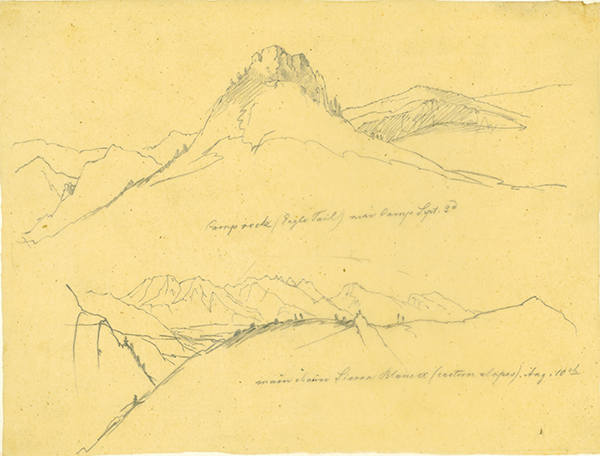 Camp rock (Eagle Tail) near Camp Spt. 3d
main chaine Sierra Blanca (eastern slopes). Aug. 10th